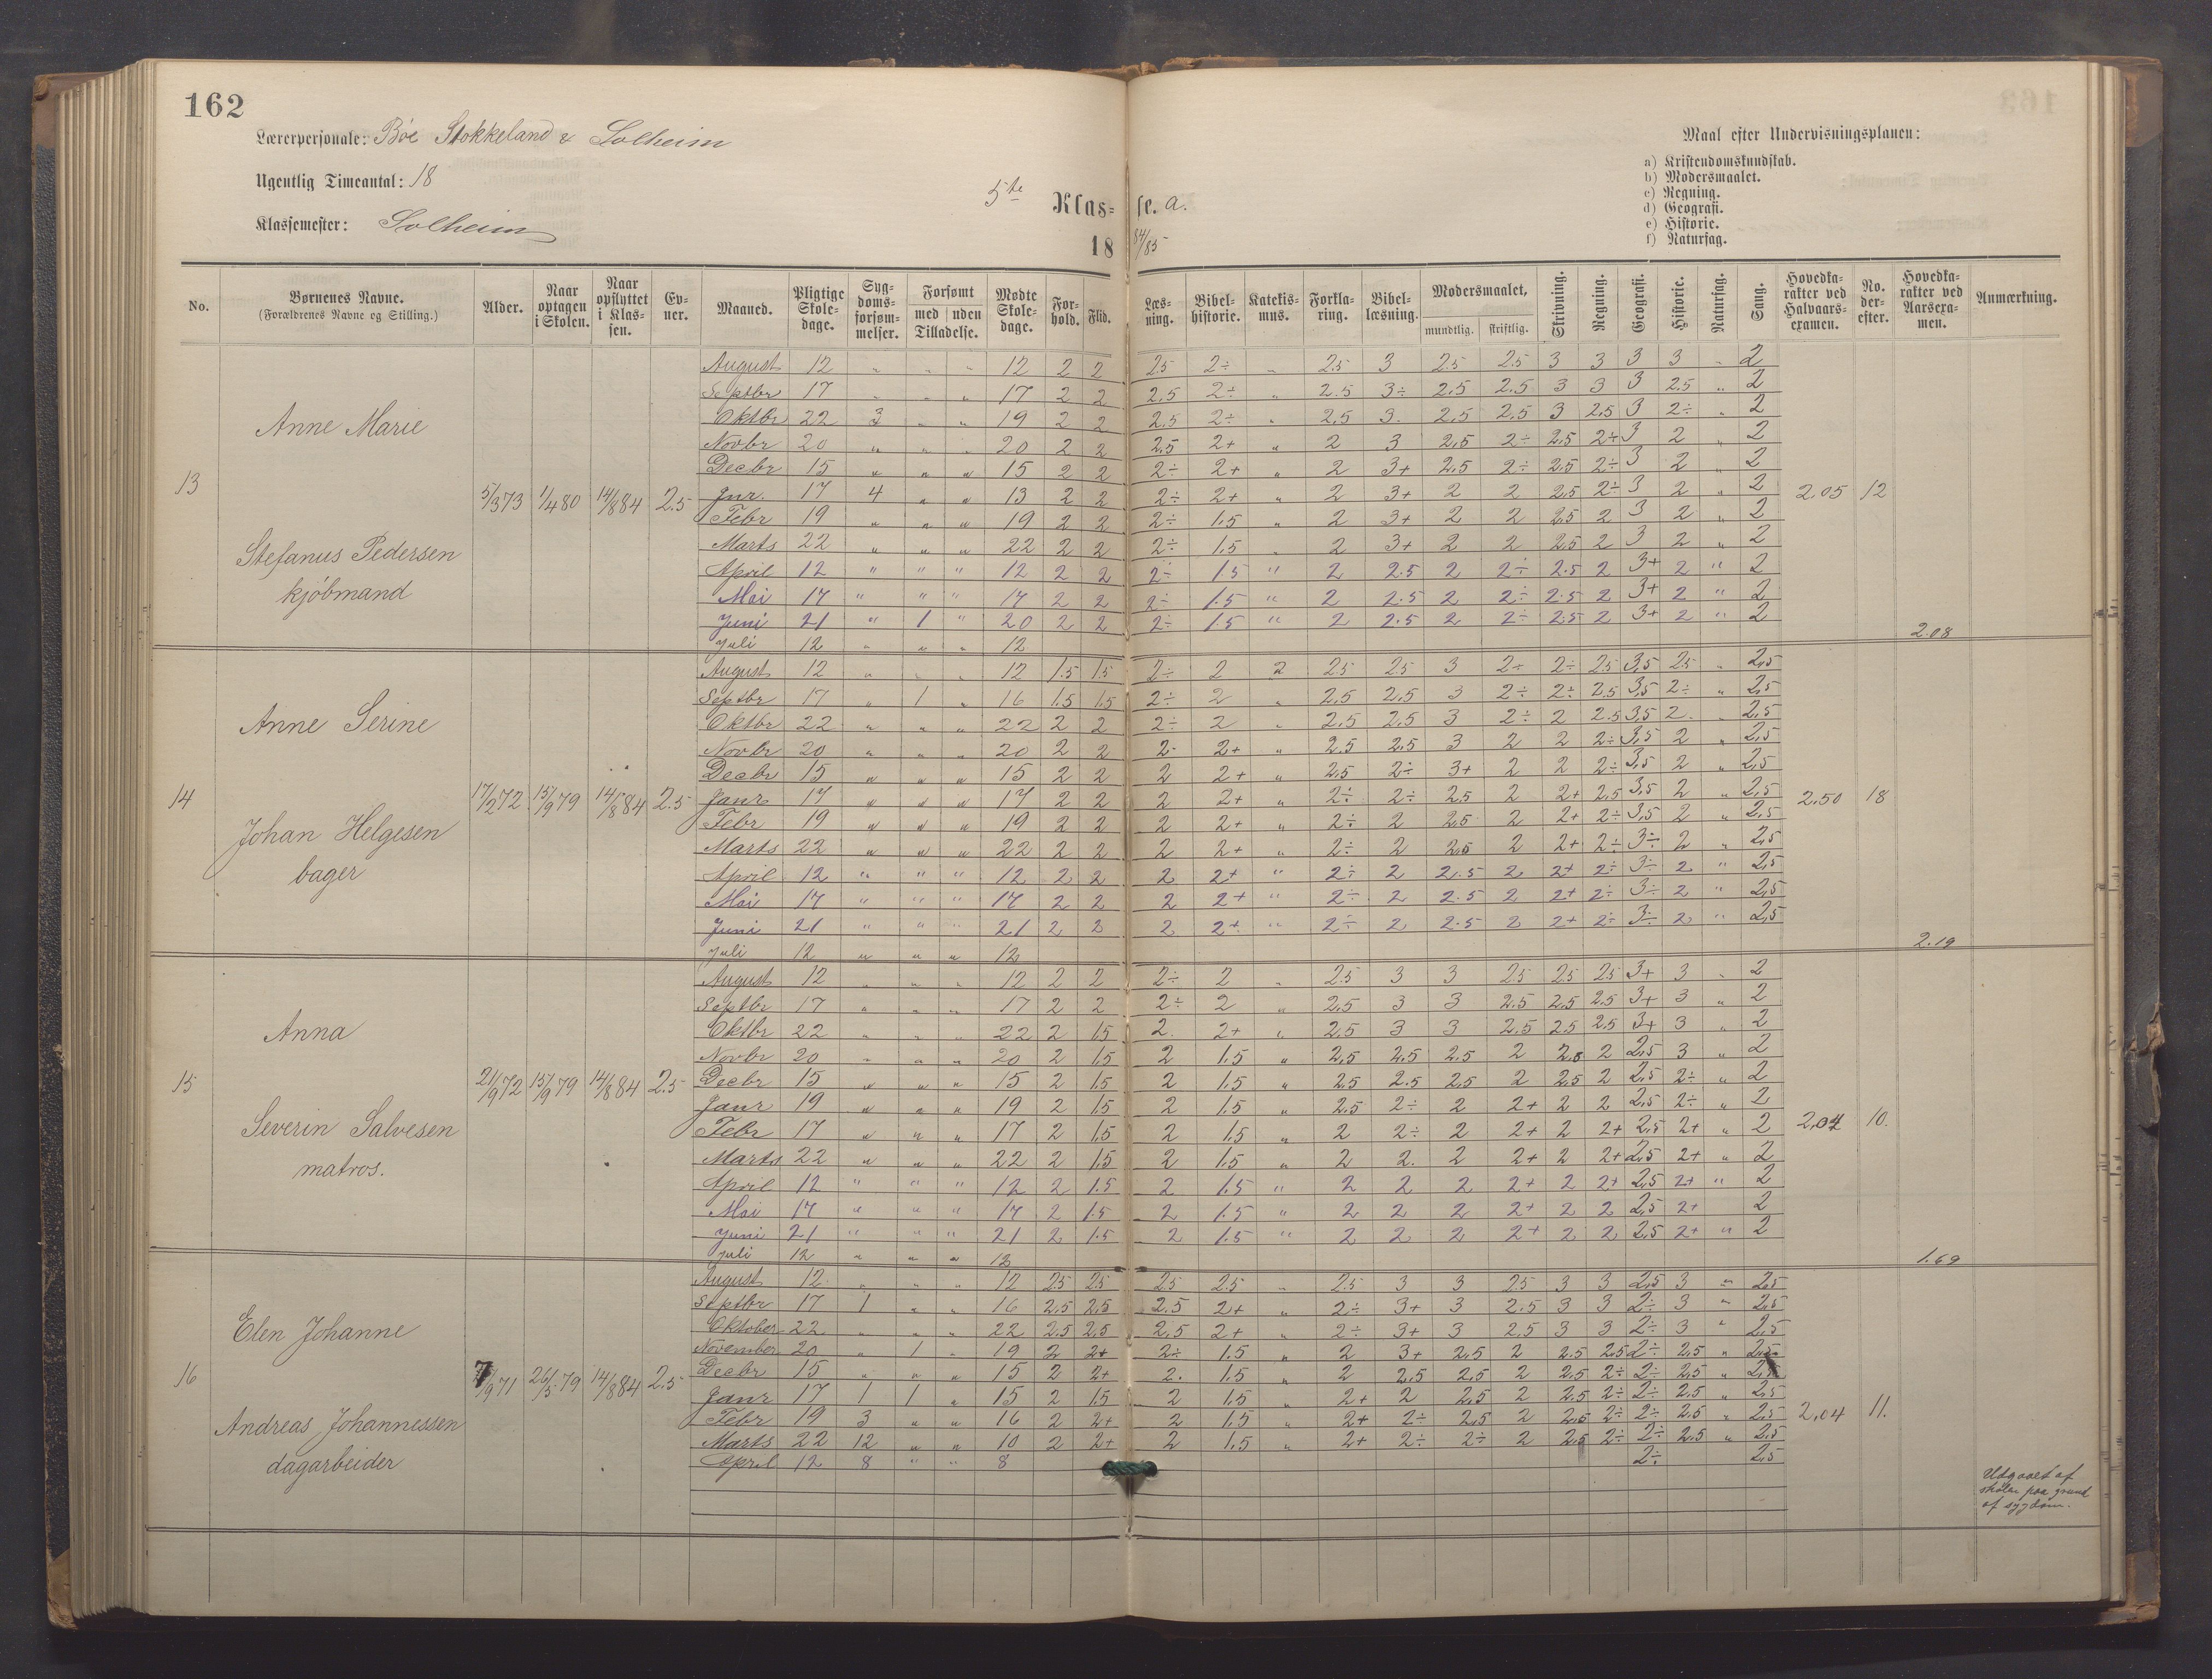 162
Lærerpersonale: Bøe Stokkeland & Solheim
Ugentlig Timeantal: 18
Klassemester: Solheim
5te Klas= se. a.
18 84/85
Maal efter Undervisningsplanen:
a) Kristendomskundskab.
b) Modersmaalet.
c) Regning.
d) Geografi.
e) Historie.
f) Naturfag.
No. Børnenes Navne. (Forældrenes Navne og Stilling.) Alder. Naar optagen i Skolen. Naar opflyttet i Klassen. Evner. Maaned. Pligtige Skoledage. Sygdomsforsømmelser. Forsømt med uden Tilladelse. Mødte Skoledage. Forhold. Flid. Læsning. Bibelhistorie. Katekismus. Forklaring. Bibellæsning. Modersmaalet, mundtlig. skriftlig. Skrivning. Regning. Geografi. Historie. Naturfag. Sang. Hovedkarakter ved Halvaarsexamen. No. derefter. Hovedkarakter ved Aarsexamen. Anmærkning.
13 Anne Marie
Stefanus Pedersen
kjöbmand
5/3 73 1/4 80 14/8 84 2.5 2,05 12 2.08
August 12 " " " 12 2 2 2.5 2÷ " 2.5 3 2.5 2.5 3 3 3 3 " 2
Septbr 17 " " " 17 2 2 2.5 2÷ " 2.5 3÷ 2.5 2.5 3 3 3 2.5 " 2
Oktbr 22 3 " " 19 2 2 2.5 2÷ " 2.5 3 2.5 2.5 3 2.5 3 2÷ " 2
Novbr 20 " " " 20 2 2 2.5 2+ " 2 3 2.5 2÷ 2.5 2÷ 3 2 " 2
Decbr 15 " " " 15 2 2 2÷ 2+ " 2 3+ 2.5 2÷ 2.5 2÷ 3 2 " 2
Jnr. 17 4 " " 13 2 2 2÷ 2+ " 2 3+ 2 2 2.5 2÷ 3 2 " 2
Febr 19 " " " 19 2 2 2÷ 1.5 " 2 3+ 2 2 2.5 2 3 2 " 2
Marts 22 " " " 22 2 2 2÷ 1.5 " 2 3+ 2 2 2.5 2 3 2 " 2
April 12 " " " 12 2 2 2÷ 1.5 " 2 2.5 2 2÷ 2.5 2 3+ 2 " 2
Mai 17 " " " 17 2 2 2÷ 1.5 " 2 2.5 2 2÷ 2.5 2 3+ 2 " 2
Juni 21 " 1 " 20 2 2 2÷ 1.5 " 2 2.5 2 2÷ 2.5 2 3+ 2 " 2
Juli 12 " " " 12
14 Anne Serine
Johan Helgesen
bager
17/2 72 15/9 79 14/8 84 2.5 2,50 18 2.19
August 12 " " " 12 1.5 1.5 2÷ 2 2 2.5 2.5 3 2+ 2÷ 2.5 3,5 2.5 " 2,5
Septbr 17 " 1 " 16 1.5 1.5 2÷ 2 " 2.5 2.5 3 2÷ 2÷ 2.5 3,5 2÷ " 2,5
Oktbr 22 " " " 22 2 2 2÷ 2 " 2.5 2.5 3 2÷ 2 2.5 3,5 2 " 2,5
Novbr 20 " " " 20 2 2 2- 2+ " 2.5 2.5 3 2 2 2÷ 3,5 2 " 2,5
Decbr 15 " " " 15 2 2 2 2+ " 2.5 2÷ 3+ 2 2 2÷ 3,5 2 " 2,5
Janr 17 " " " 17 2 2 2 2+ " 2÷ 2÷ 2.5 2 2+ 2.5 3,5 2 " 2,5
Febr 19 " " " 19 2 2 2 2+ " 2÷ 2 2.5 2 2+ 2÷ 3,5 2 " 2,5
Marts 22 " " " 22 2 2 2 2+ " 2÷ 2 2.5 2 2+ 2÷ 3÷ 2 " 2,5
April 12 " " " 12 2 2 2 2+ " 2÷ 2 2.5 2 2+ 2÷ 3÷ 2 " 2,5
Mai 17 " " " 17 2 2 2 2+ " 2÷ 2 2.5 2 2+ 2÷ 3÷ 2 " 2,5
Juni 21 " " " 21 2 2 2 2+ " 2÷ 2 2.5 2 2+ 2÷ 3÷ 2 " 2,5
Juli 12 " " " 12
15 Anna
Severin Salvesen
matros.
21/9 72 15/9 79 14/8 84 2.5 2,04 10. 1.69
August 12 " " " 12 2 2 2÷ 2 " 2.5 3 3 2.5 2.5 2.5 3+ 3 " 2
Septbr 17 " " " 17 2 2 2÷ 2 " 2.5 3 3 2.5 2.5 2.5 3+ 3 " 2
Oktbr 22 " " " 22 2 1.5 2. 2+ " 2.5 3 3 2.5 2.5 2.5 3+ 3 " 2
Novbr 20 " " " 20 2 1.5 2 1.5 " 2.5 2.5 2.5 2 2.5 2 2,5 3 " 2
Decbr 15 " " " 15 2 1.5 2 1.5 " 2.5 2.5 2.5 2 2.5 2 2,5 2÷ " 2
Janr 19 " " " 19 2 1.5 2 1.5 " 2.5 2÷ 2 2+ 2 2 2,5 2÷ " 2
Febr 17 " " " 17 2 1.5 2 1.5 " 2 2÷ 2 2+ 2 2+ 2,5 2+ " 2
Marts 22 " " " 22 2 1.5 2 1.5 " 2 2. 2 2+ 2 2+ 2,5 2+ " 2
April 12 " " " 12 2 1.5 2 1.5 " 2 2 2 2+ 2 2+ 2,5 2+ " 2
Mai 17 " " " 17 2 1.5 2 1.5 " 2 2 2 2+ 2 2 2,5 2+ 2
Juni 21 " " " 21 2 1.5 2 1.5 " 2 2 2 2+ 2 2 2,5 2+ " 2
Juli 12 " " " 12
16 Elen Johanne
Andreas Johannessen
dagarbeider
7/9 71 26/5 79 14/8 84 2.5 2,04 11.
August 12 " " " 12 2.5 2.5 2.5 2.5 " 2.5 3 3 2.5 3 3 2,5 3 " 2,5
Septbr 17 1 " " 16 2.5 2.5 2.5 2+ " 2÷ 3+ 3 2.5 3 3 2÷ 3 " 2,5
Oktober 22 " " " 22 2.5 2.5 2,5 2+ " 2÷ 3+ 3 2.5 3 3 2÷ 3 " 2,5
November 20 " 1 " 19 2 2+ 2÷ 1.5 " 2 3+ 2.5 2 2.5 2.5 2÷ 2.5 " 2,5
Decbr 15 " " " 15 2 2+ 2. 1.5 " 2 2.5 2.5 2 2.5 2÷ 2÷ 2.5 " 2,5
Janr 17 1 1 " 15 2 1.5 2 1.5 " 2+ 2 2.5 2 2.5 2÷ 2÷ 2.5 " 2,5
Febr 19 3 " " 16 2 2+ 2 1.5 " 2+ 2÷ 2.5 2 2.5 2÷ 2÷ 2.5 " 2,5
Marts 22 12 " " 10 2 2+ 2 1.5 " 2+ 2÷ 2÷ 2 2.5 2÷ 2÷ 2.5 " 2.5
April 12 8 " " 8 2÷ 2,5
Udgaaet af
skolen paa grund
af sygdom.